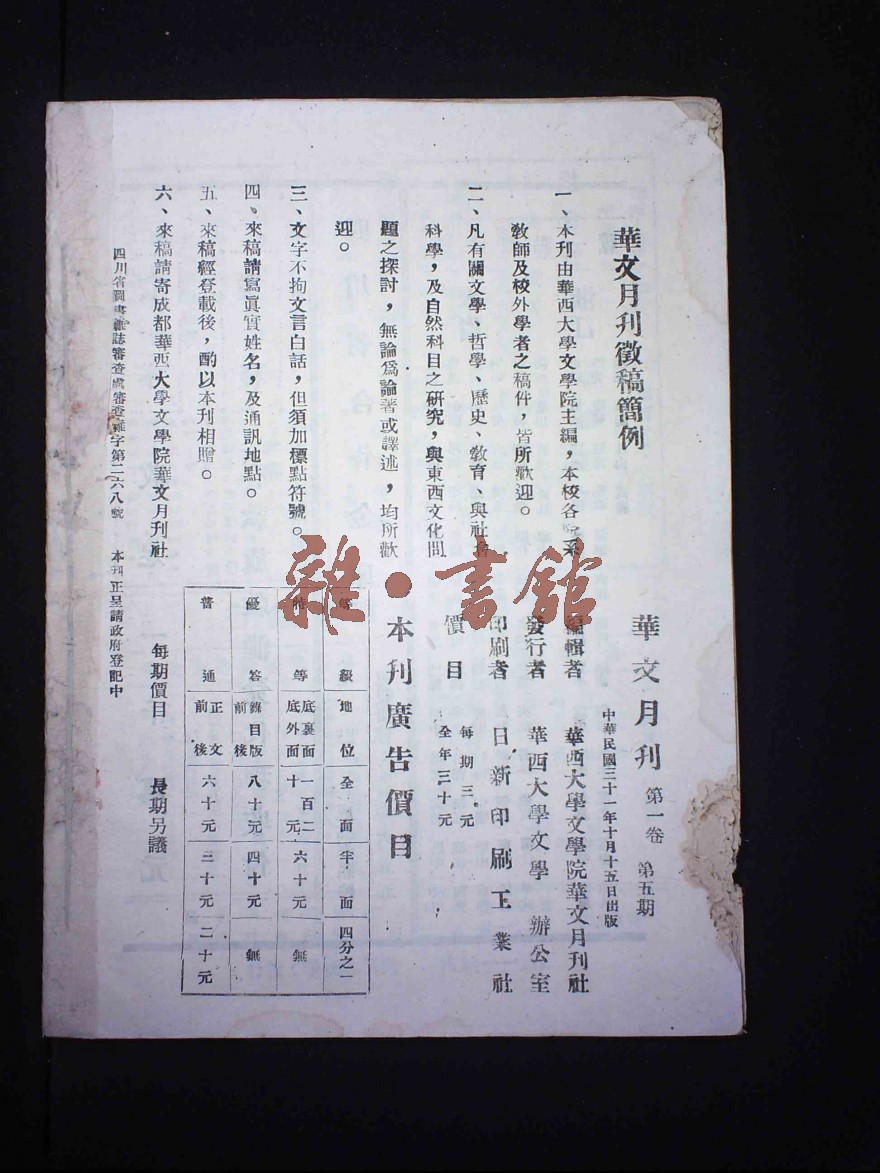 華文月刊徵稿簡例
一、本刊由華西大學文學院主編，本校各學系
教師及校外學者之稿件，皆所歡迎。
二、凡有關文學、哲學、歷史、教育、與社會
科學，及自然科目之研究，與東西文化問
題之探討，無論爲論著或譯述，均所歡
迎。
三、文字不拘文言白話，但須加標點符號。
四、來稿請寫眞實姓名，及通訊地點。
五、來稿經登載後，酌以本刊相贈。
六、來稿請寄成都華西大學文學院華文月刊社
四川省圖書雜誌審查處審查雜字第二六八號 本刊正呈請政府登記中
華文月刊 第一卷 第五期
中華民國三十一年十月十五日出版
編輯者 華西大學文學院華文月刊社
發行者 華西大學文學 辦公室
印刷者 日新印刷工業社
價目 每期三元
全年三十元
本刊廣告價目
等級 地位 全面 半面 四分之一
特等 底裏面 底外面 一百二十元 六十元 無
優等 目版前後 八十元 四十元 無
普通 正文前後 六十元 三十元 二十元
每期價目 長期另議
雜·書館